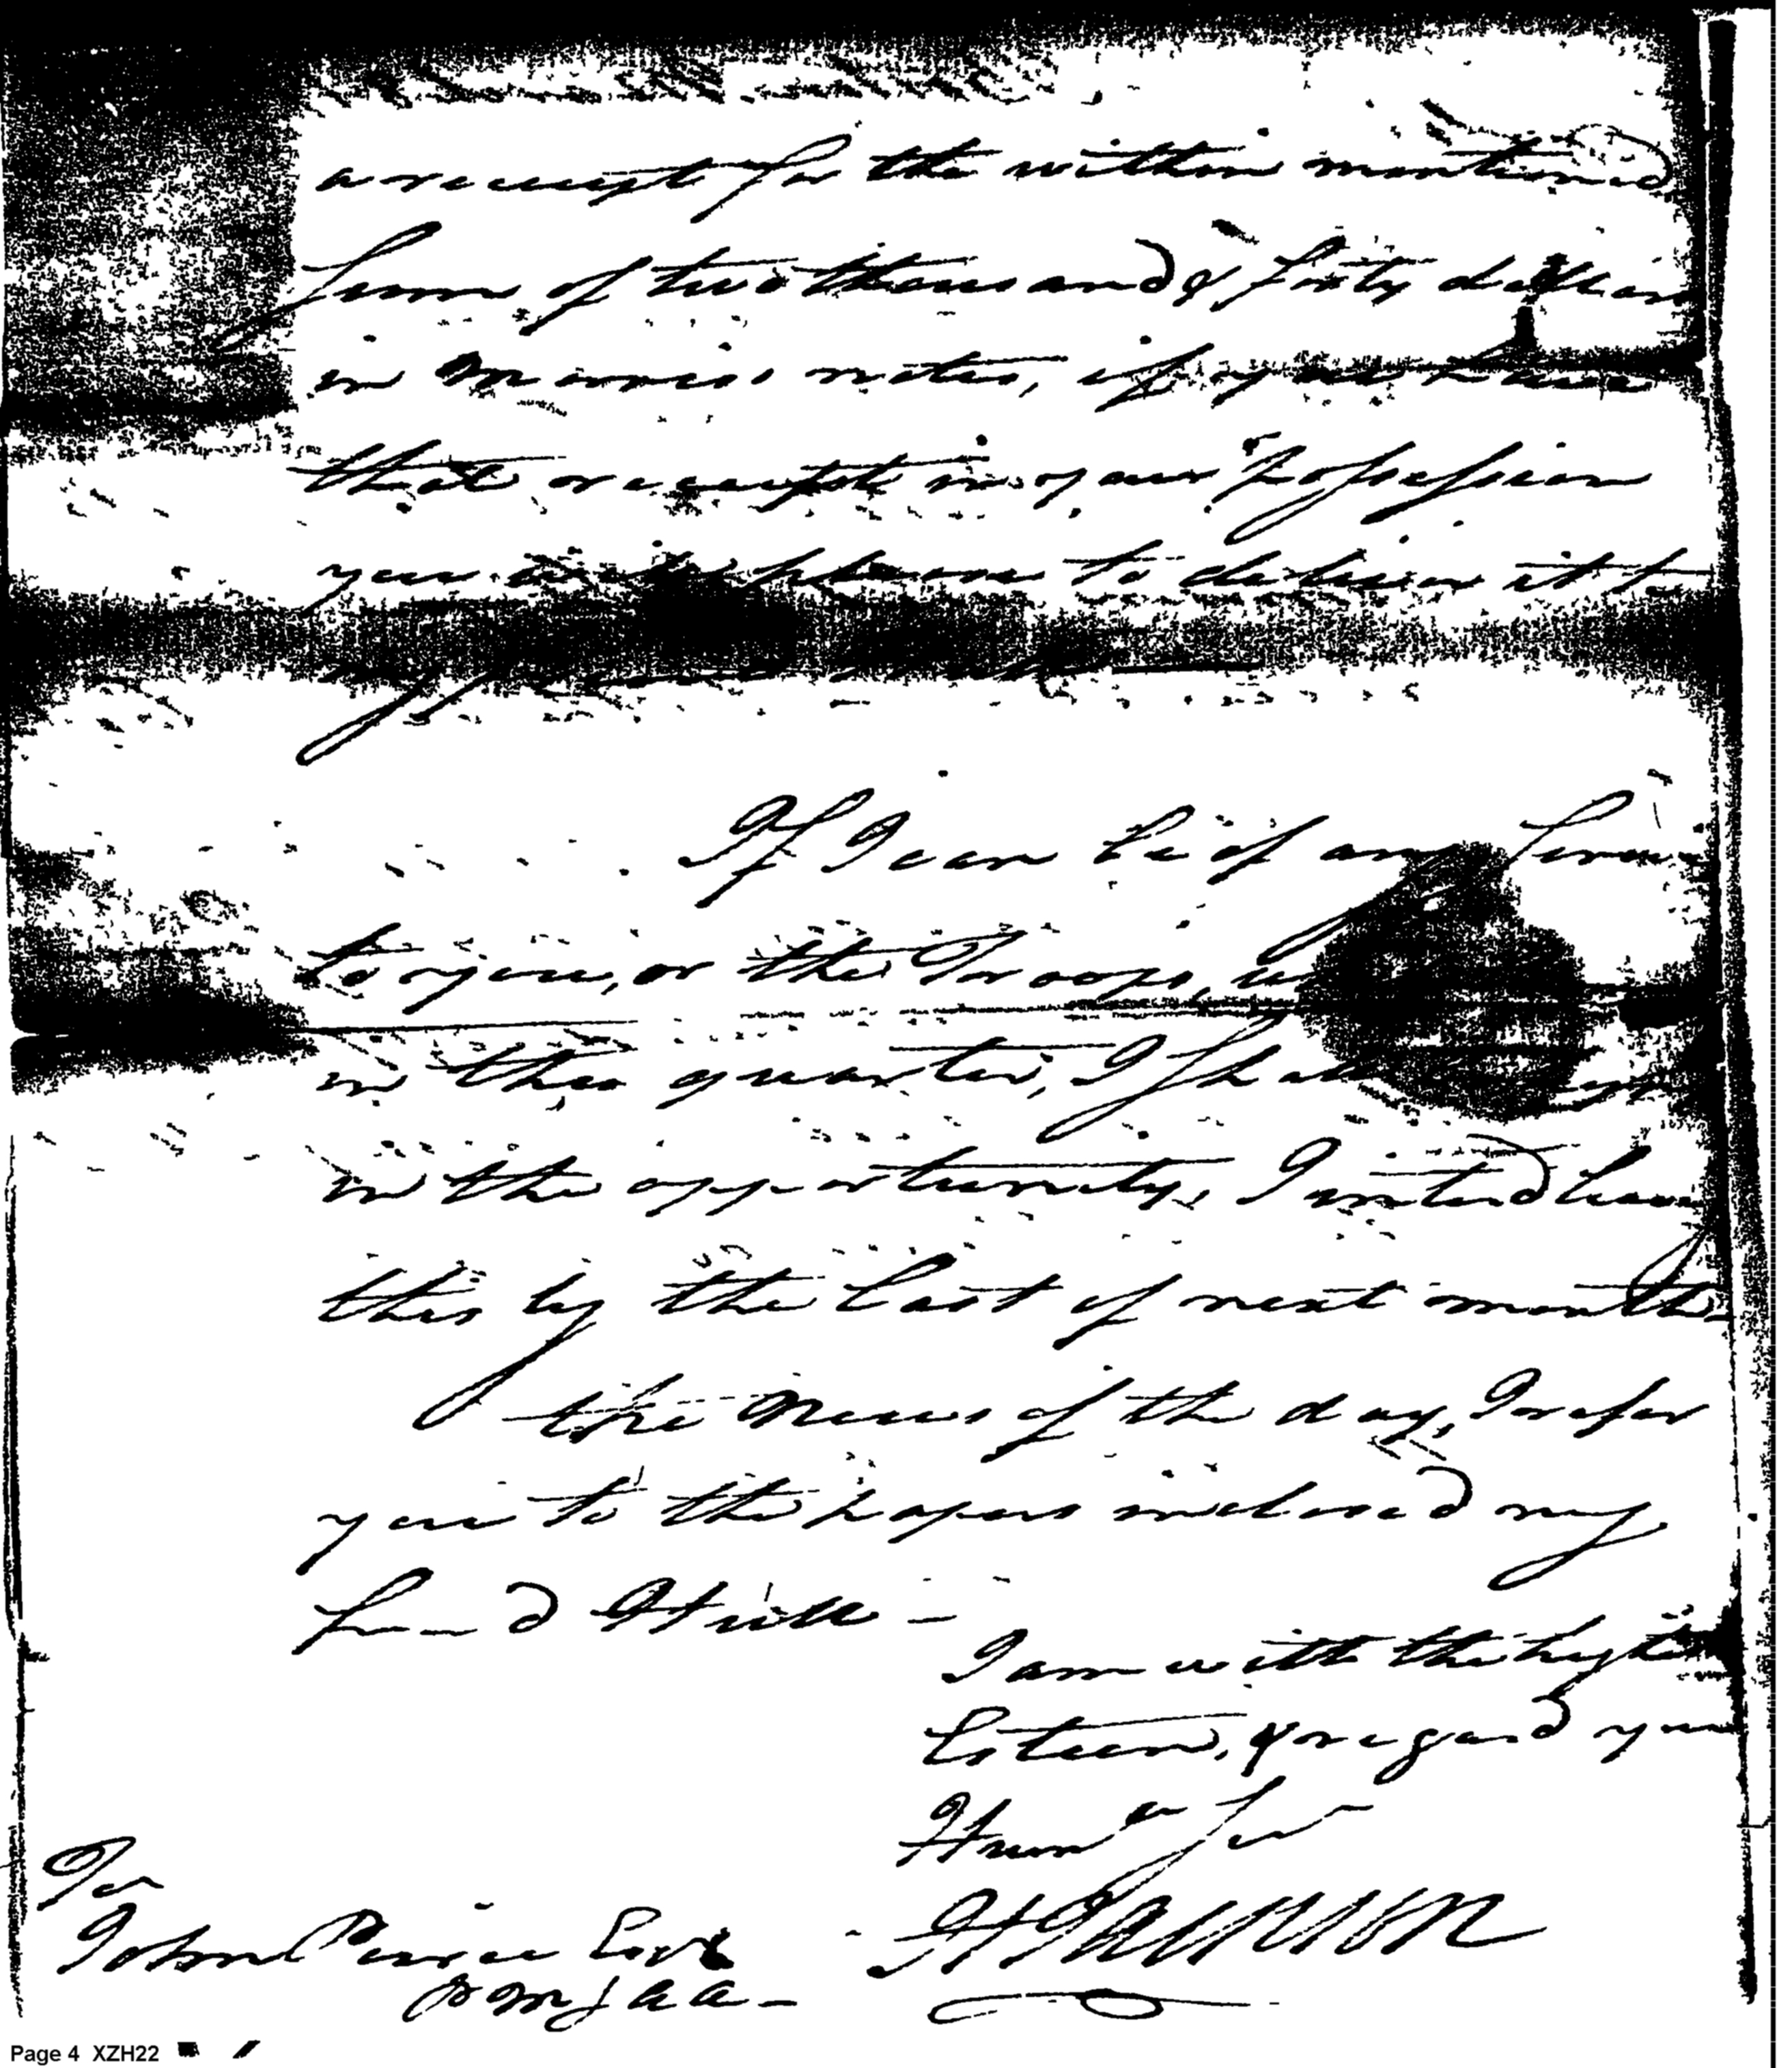 a receipt for the within mentioned
sum of two thousand & sixty dollars
in Morris's notes, if you have
that receipt in your possession
you will please to deliver it to
If I can be of any Service
to you, or the Troops,
in this quarter, I shall
in the opportunity, I intend leaving
this by the last of next month
the News of the day, I refer
you to the papers inclosed my
I am with the highest
Esteem, & regard your
Hum Ser
To
John Pierce Esqr
P M J A A -
Page 4 XZH22